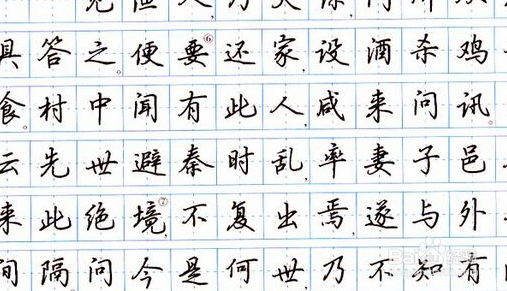 具答之。便要⑥还家,设酒杀鸡
食。村中闻有此人咸来问讯。
云先世避秦时乱率妻子邑
来此绝境,⑦不复出焉遂与外
间隔问今是何世乃不知有
Baidu经验